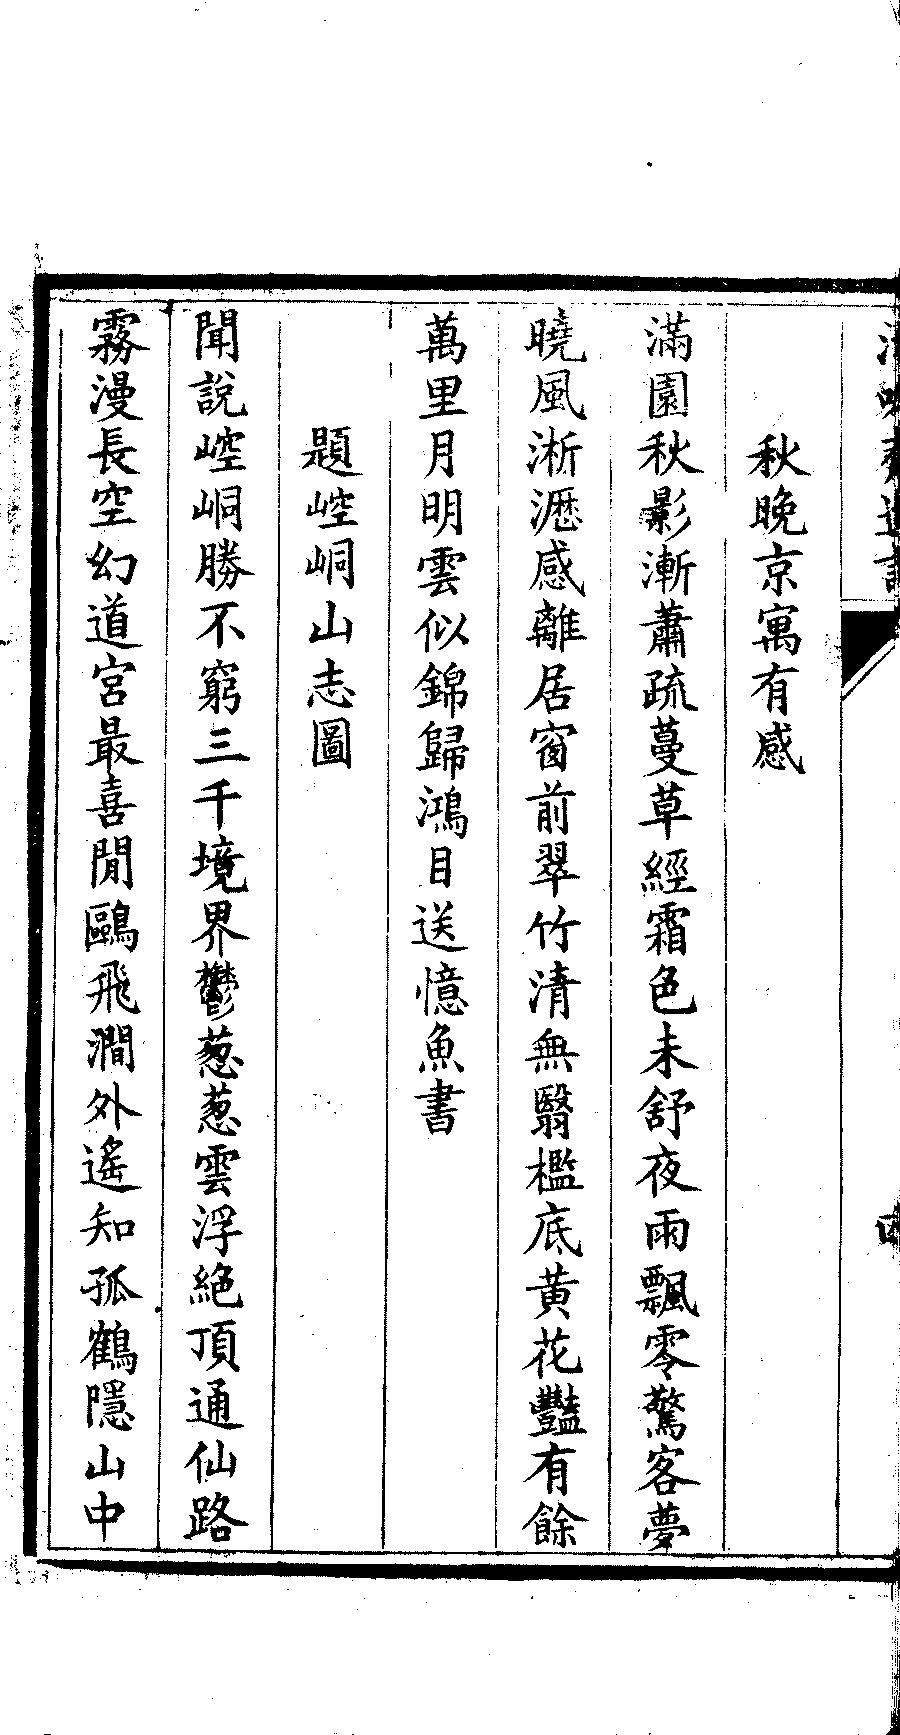 秋晚京寓有感
滿園秋影漸蕭疏蔓草經霜色未舒夜雨飄零驚客夢
曉風淅瀝感離居窗前翠竹清無翳檻底黃花豔有餘
萬里月明雲似錦歸鴻目送憶魚書
題崆峒山志圖
聞說崆峒勝不窮三千境界鬱葱葱雲浮絕頂通仙路
霧漫長空幻道宮最喜閒鷗飛澗外遙知孤鶴隱山中